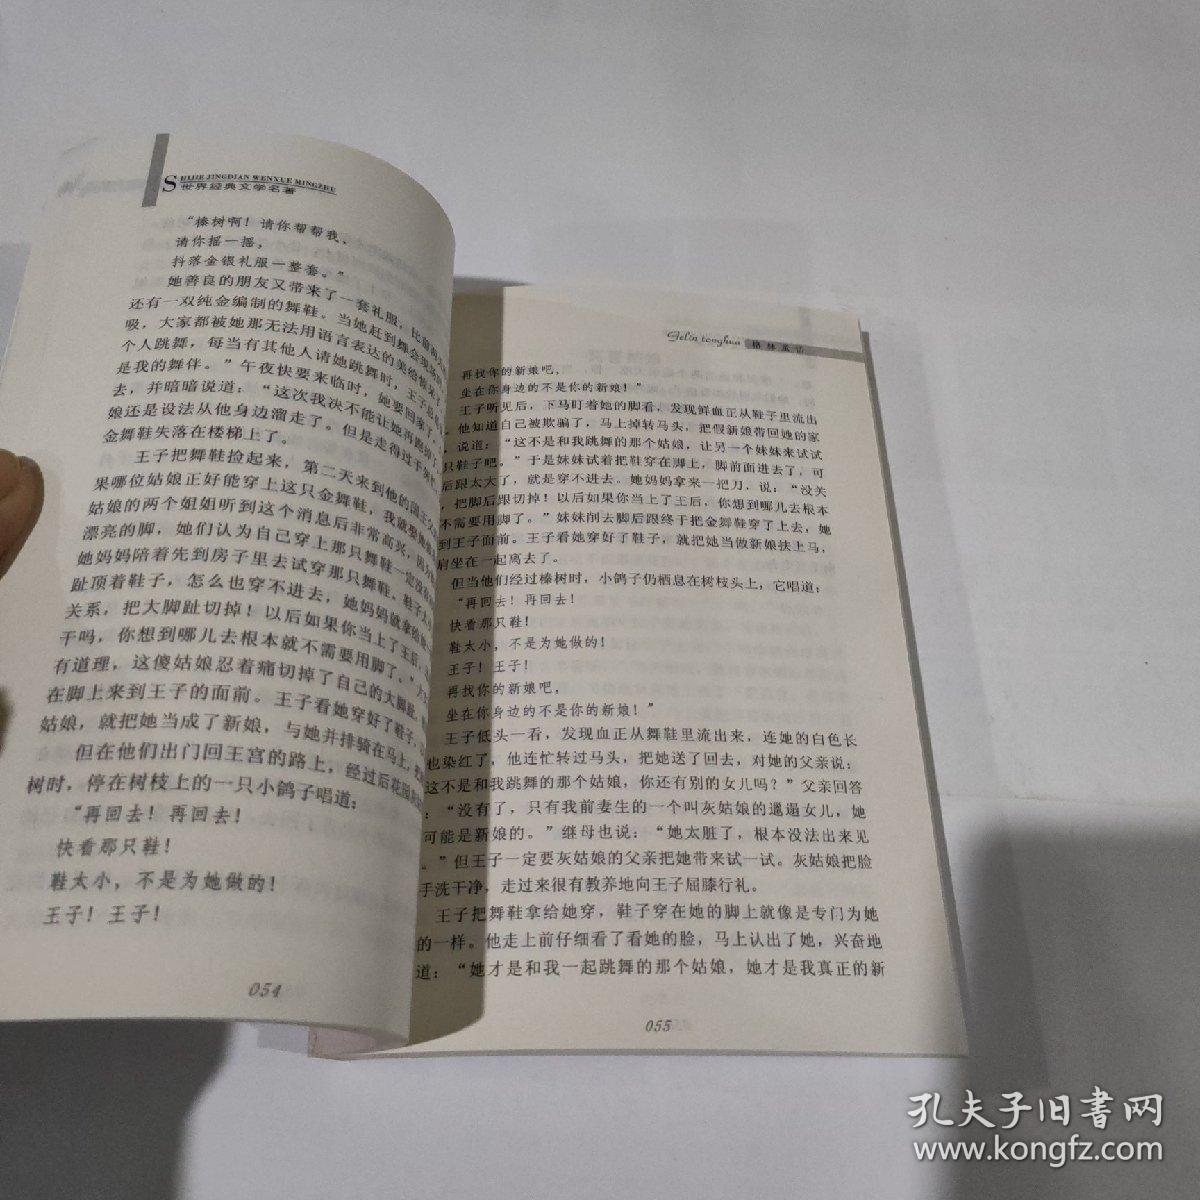 SHIJIE JINGDIAN WENXUE MINGZHU
世界经典文学名著
“榛树啊！请你帮帮我，
请你摇一摇，
抖落金银礼服一整套。”
她善良的朋友又带来了一套礼服，比
还有一双纯金编制的舞鞋。当她赶到舞会现场
吸，大家都被她那无法用语言表达的美给
个人跳舞，每当有其他人请她跳舞时，王子总
是我的舞伴。”午夜快要来临时，她要回家了，
去，并暗暗说道：“这次我决不能让她再跑掉
娘还是设法从他身边溜走了。但是走得过于
金舞鞋失落在楼梯上了。
王子把舞鞋捡起来，第二天来到他的国王父
果哪位姑娘正好能穿上这只金舞鞋，我就要她
姑娘的两个姐姐听到这个消息后非常高兴，因
漂亮的脚，她们认为自己穿上那只舞鞋一定没
她妈妈陪着先到房子里去试穿那只舞鞋，
趾顶着鞋子，怎么也穿不进去，她妈妈就拿给她
关系，把大脚趾切掉！以后如果你当上了王后，
干吗，你想到哪儿去根本就不需要用脚了。”
有道理，这傻姑娘忍着痛切掉了自己的大脚趾，
在脚上来到王子的面前。王子看她穿好了鞋子，
姑娘，就把她当成了新娘，与她并排骑在马上，
但在他们出门回王宫的路上，经过后花园
树时，停在树枝上的一只小鸽子唱道：
“再回去！再回去！
快看那只鞋！
鞋太小，不是为她做的！
王子！王子！
054
Gelin tonghua 格林童话
再找你的新娘吧，
坐在你身边的不是你的新娘！”
王子听见后，下马盯着她的脚看，发现鲜血正从鞋子里流出
他知道自己被欺骗了，马上掉转马头，把假新娘带回她的家
说道：“这不是和我跳舞的那个姑娘，让另一个妹妹来试试
只鞋子吧。”于是妹妹试着把鞋穿在脚上，脚前面进去了，可
后跟太大了，就是穿不进去。她妈妈拿来一把刀，说：“没关
，把脚后跟切掉！以后如果你当上了王后，你想到哪儿去根本
不需要用脚了。”妹妹削去脚后跟终于把金舞鞋穿了上去，她
到王子面前。王子看她穿好了鞋子，就把她当做新娘扶上马，
肩坐在一起离去了。
但当他们经过榛树时，小鸽子仍栖息在树枝头上，它唱道：
“再回去！再回去！
快看那只鞋！
鞋太小，不是为她做的！
王子！王子！
再找你的新娘吧，
坐在你身边的不是你的新娘！”
王子低头一看，发现血正从舞鞋里流出来，连她的白色长
也染红了，他连忙转过马头，把她送了回去，对她的父亲说：
这不是和我跳舞的那个姑娘，你还有别的女儿吗？”父亲回答
：“没有了，只有我前妻生的一个叫灰姑娘的邋遢女儿，她
可能是新娘的。”继母也说：“她太脏了，根本没法出来见
。”但王子一定要灰姑娘的父亲把她带来试一试。灰姑娘把脸
手洗干净，走过来很有教养地向王子屈膝行礼。
王子把舞鞋拿给她穿，鞋子穿在她的脚上就像是专门为她
的一样。他走上前仔细看了看她的脸，马上认出了她，兴奋地
道：“她才是和我一起跳舞的那个姑娘，她才是我真正的新
055
孔夫子旧书网
www.kongfz.com